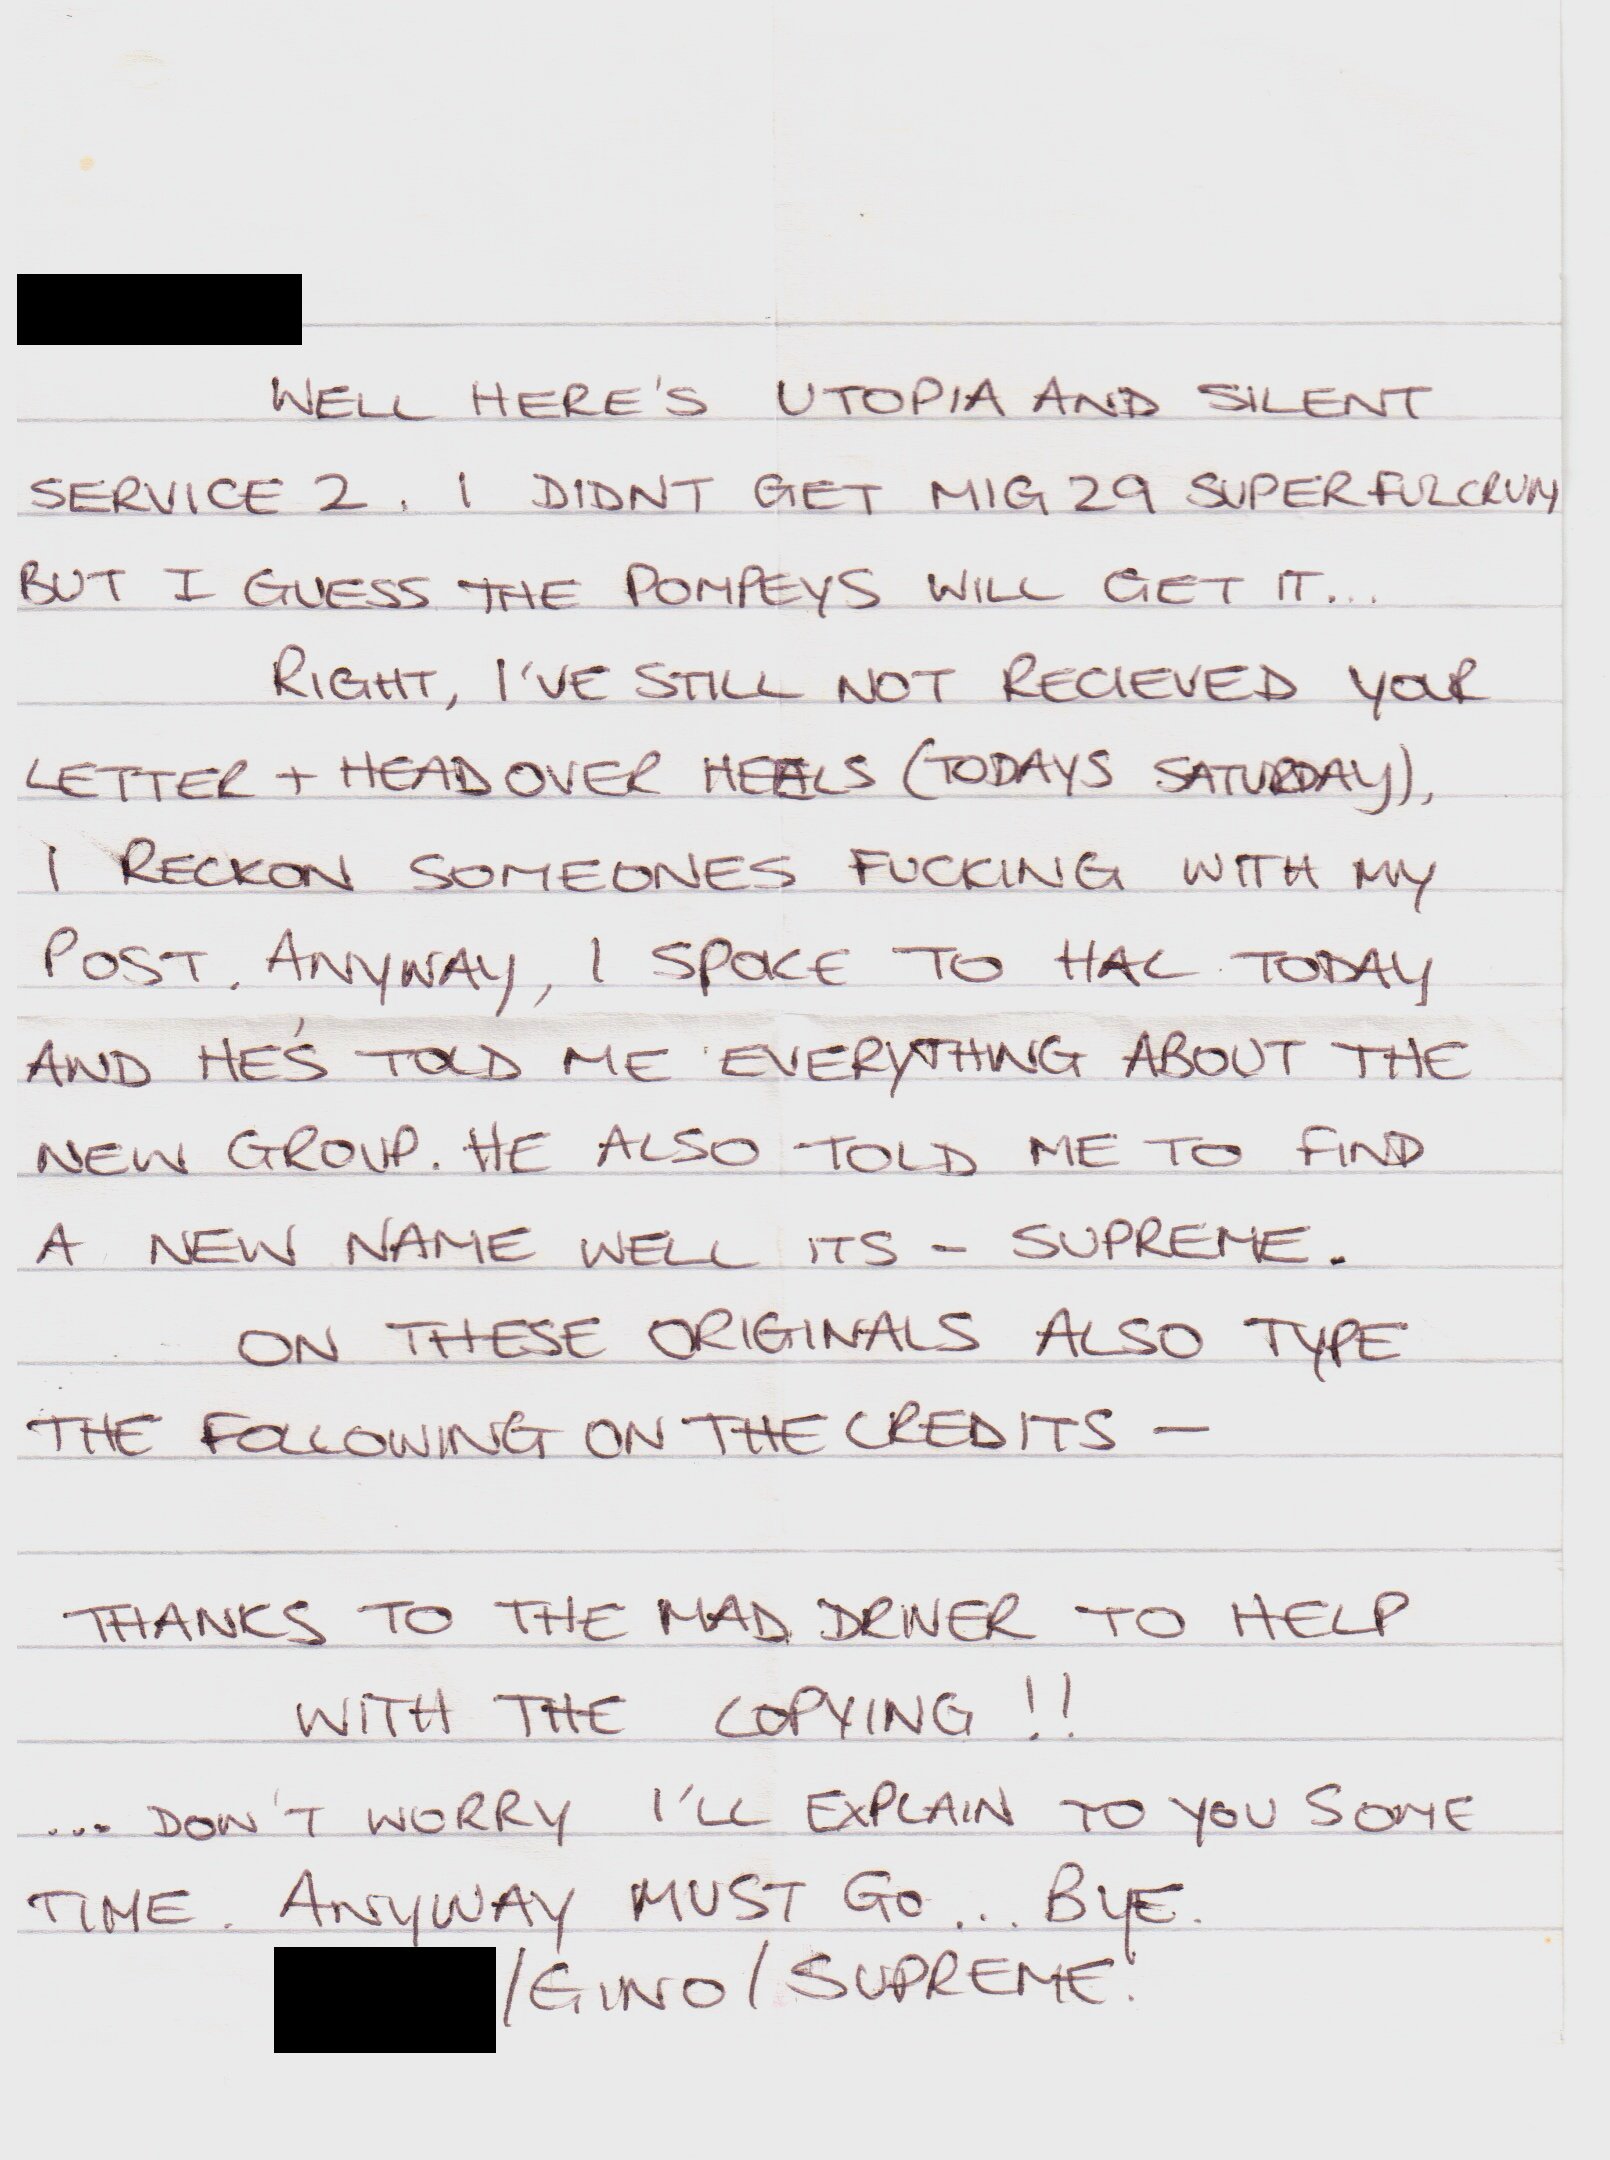 WELL HERE'S UTOPIA AND SILENT
SERVICE 2. I DIDNT GET MIG 29 SUPERFULCRUM
BUT I GUESS THE POMPEYS WILL GET IT...
RIGHT, I'VE STILL NOT RECIEVED YOUR
LETTER + HEAD OVER HEALS (TODAYS SATURDAY),
I RECKON SOMEONES FUCKING WITH MY
POST. ANYWAY, I SPOKE TO HAL TODAY
AND HE'S TOLD ME EVERYTHING ABOUT THE
NEW GROUP. HE ALSO TOLD ME TO FIND
A NEW NAME WELL ITS - SUPREME.
ON THESE ORIGINALS ALSO TYPE
THE FOLLOWING ON THE CREDITS -
THANKS TO THE MAD DRIVER TO HELP
WITH THE COPYING !!
... DON'T WORRY I'LL EXPLAIN TO YOU SOME
TIME. ANYWAY MUST GO... BYE.
/GINO/SUPREME.